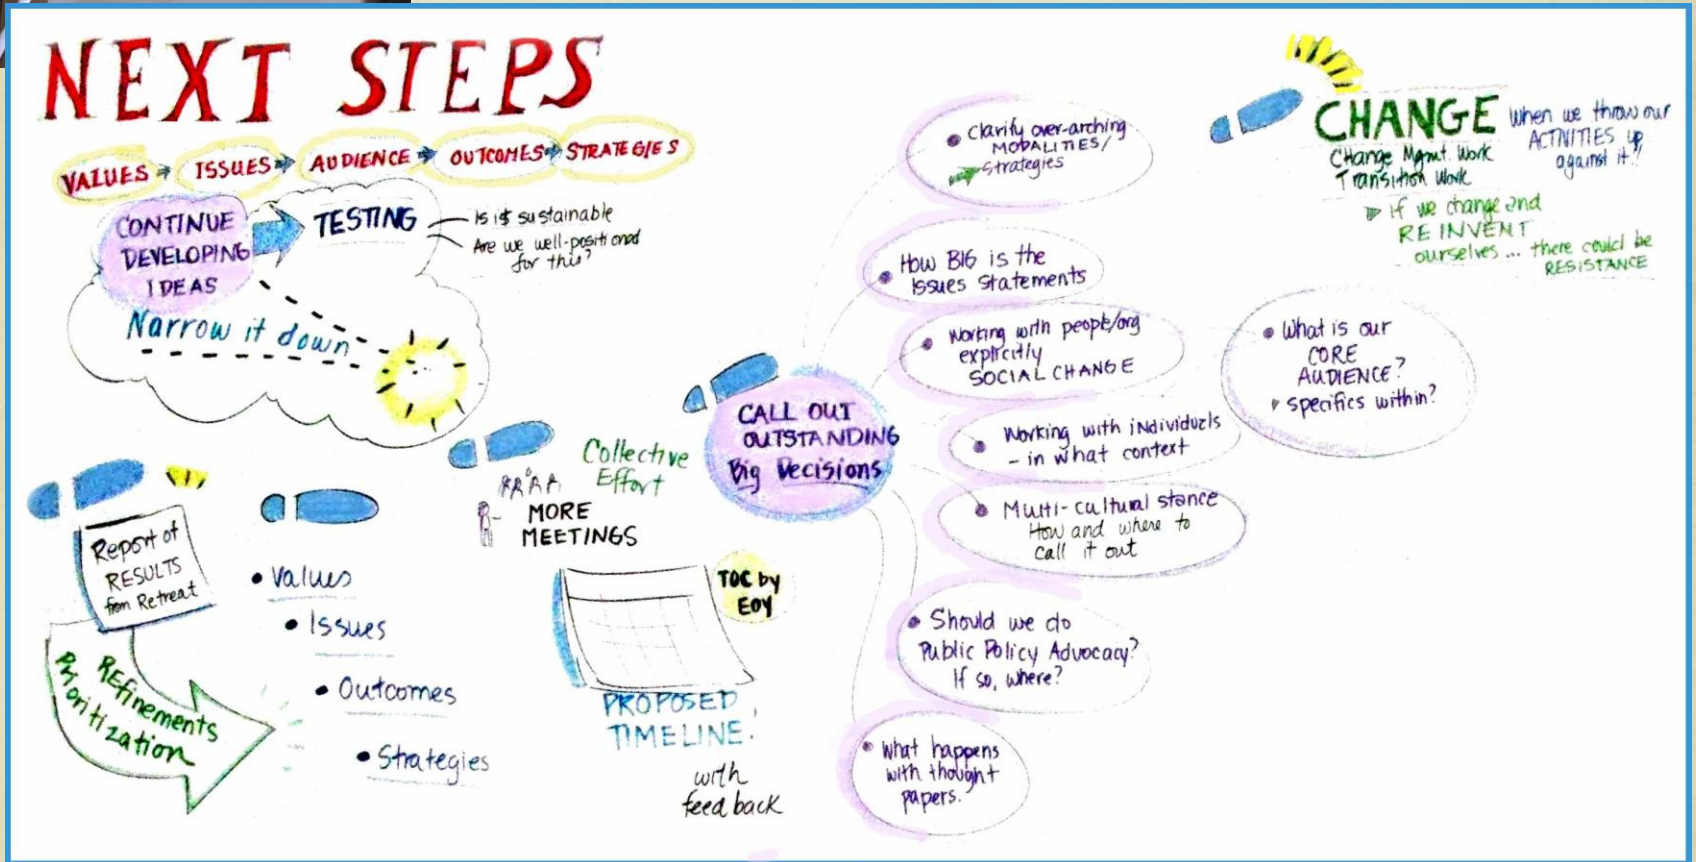 NEXT STEPS
VALUES ISSUES AUDIENCE OUTCOMES STRATEGIES
CONTINUE
DEVELOPING
IDEAS
TESTING
Is it sustainable
Are we well-positioned
for this?
Narrow it down
Report of
RESULTS
from Retreat
REfinements
Prioritization
• Values
• Issues
• Outcomes
• Strategies
MORE
MEETINGS
Collective
Effort
TOC by
EOY
PROPOSED
TIMELINE!
with
feedback
CALL OUT
OUTSTANDING
Big Decisions
• Clarify over-arching
MODALITIES/
Strategies
• How BIG is the
Issues Statements
• Working with people/org
explicitly
SOCIAL CHANGE
• Working with individuals
- in what context
• What is our
CORE
AUDIENCE?
specifics within?
• Multi-cultural stance
How and where to
call it out
• Should we do
Public Policy Advocacy?
If so, where?
• What happens
with thought
papers.
CHANGE
Change Mgmt. Work
Transition Work
When we throw our
ACTIVITIES up
against it!!
If we change and
REINVENT
ourselves... there could be
RESISTANCE